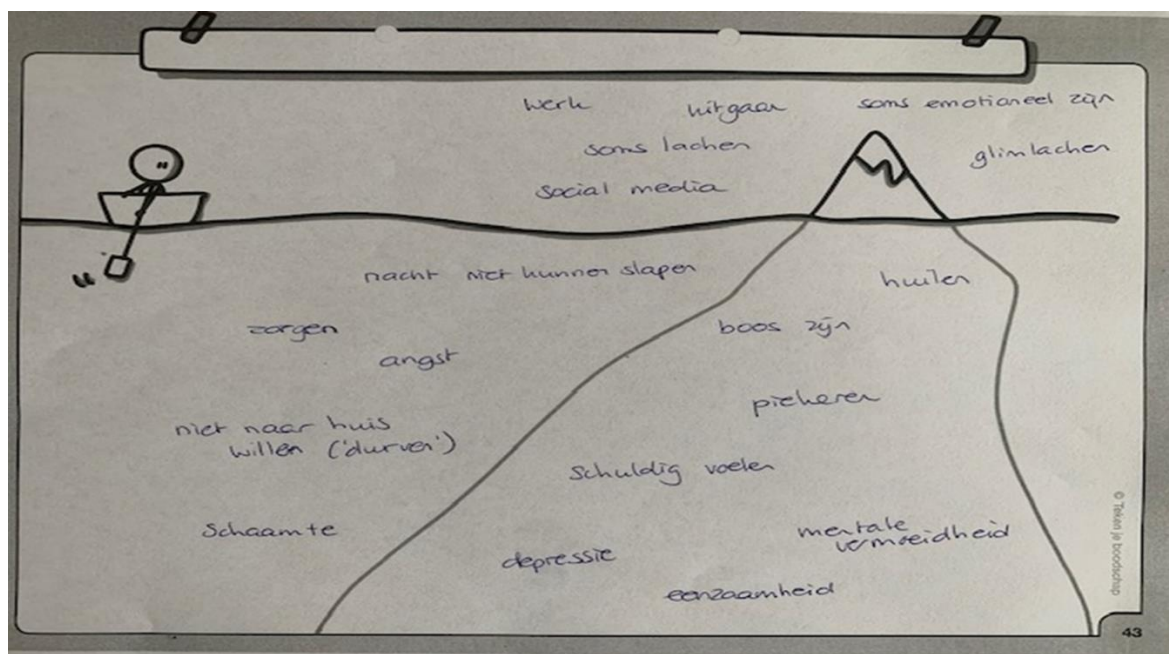 werk uitgaan soms emotioneel zijn
soms lachen glimlachen
social media
nacht niet kunnen slapen huilen
zorgen boos zijn
angst
piekeren
niet naar huis
willen ('durven')
schuldig voelen
schaamte mentale
vermoeidheid
depressie
eenzaamheid
© Teken je boodschap
43